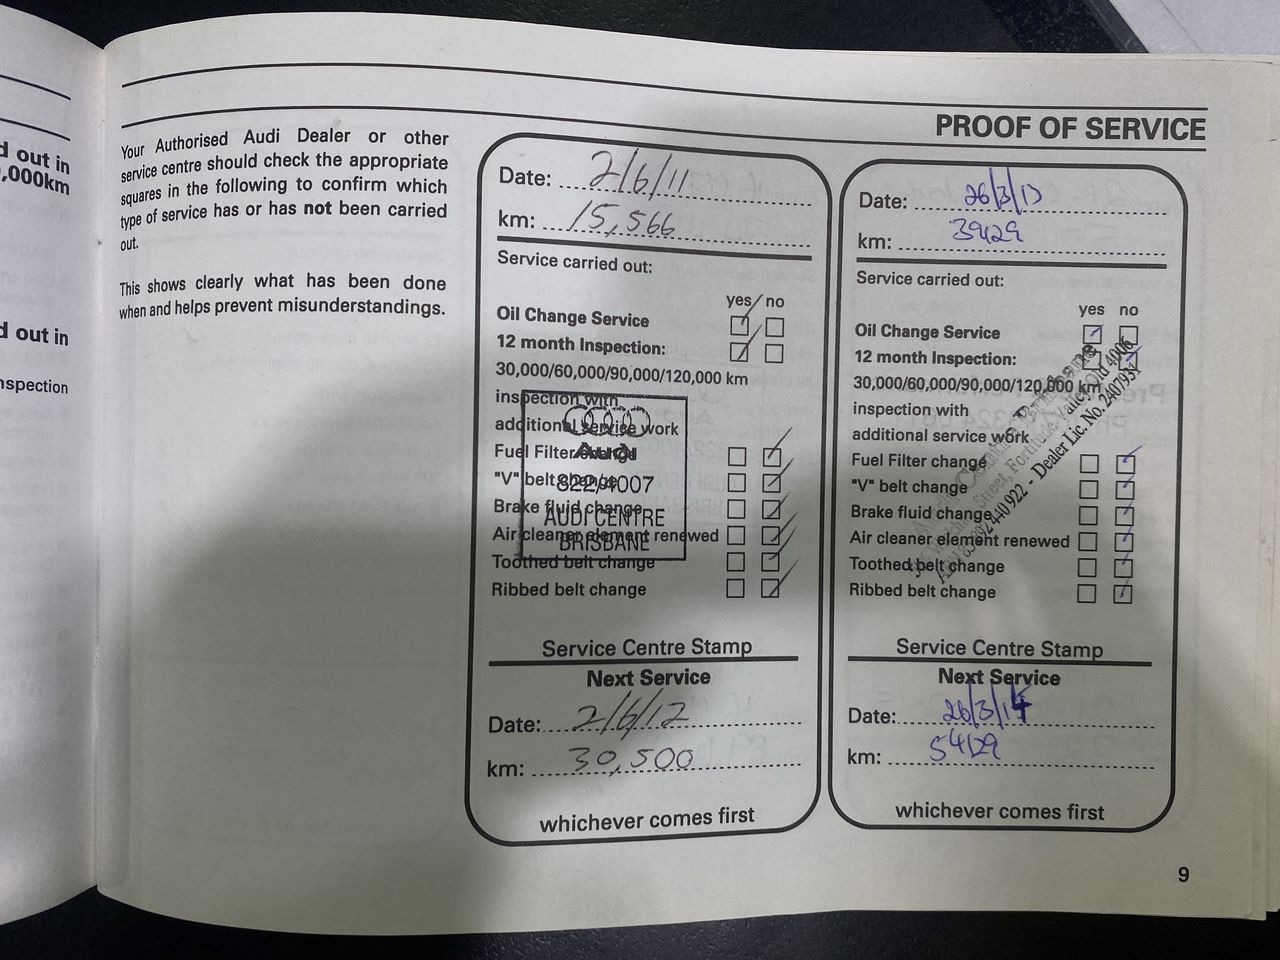 d out in
,000km
d out in
nspection
PROOF OF SERVICE
Your Authorised Audi Dealer or other
service centre should check the appropriate
squares in the following to confirm which
type of service has or has not been carried
out.
This shows clearly what has been done
when and helps prevent misunderstandings.
Date: 2/6/11
km: 15,566
Service carried out:
yes no
Oil Change Service
12 month Inspection:
30,000/60,000/90,000/120,000 km
inspection with
additional service work
Fuel Filter change
"V" belt change
Brake fluid change
Air cleaner element renewed
Toothed belt change
Ribbed belt change
Audi
822/4007
AUDI CENTRE
BRISBANE
Service Centre Stamp
Next Service
Date: 2/6/12
km: 30,500
whichever comes first
Date: 26/3/13
km: 39129
Service carried out:
yes no
Oil Change Service
12 month Inspection:
30,000/60,000/90,000/120,000 km
inspection with
additional service work
Fuel Filter change
"V" belt change
Brake fluid change
Air cleaner element renewed
Toothed belt change
Ribbed belt change
Centre Brisbane
Street, Fortitude Valley Qld 4006
440 922 - Dealer Lic. No. 2407931
Service Centre Stamp
Next Service
Date: 26/3/14
km: 54129
whichever comes first
9